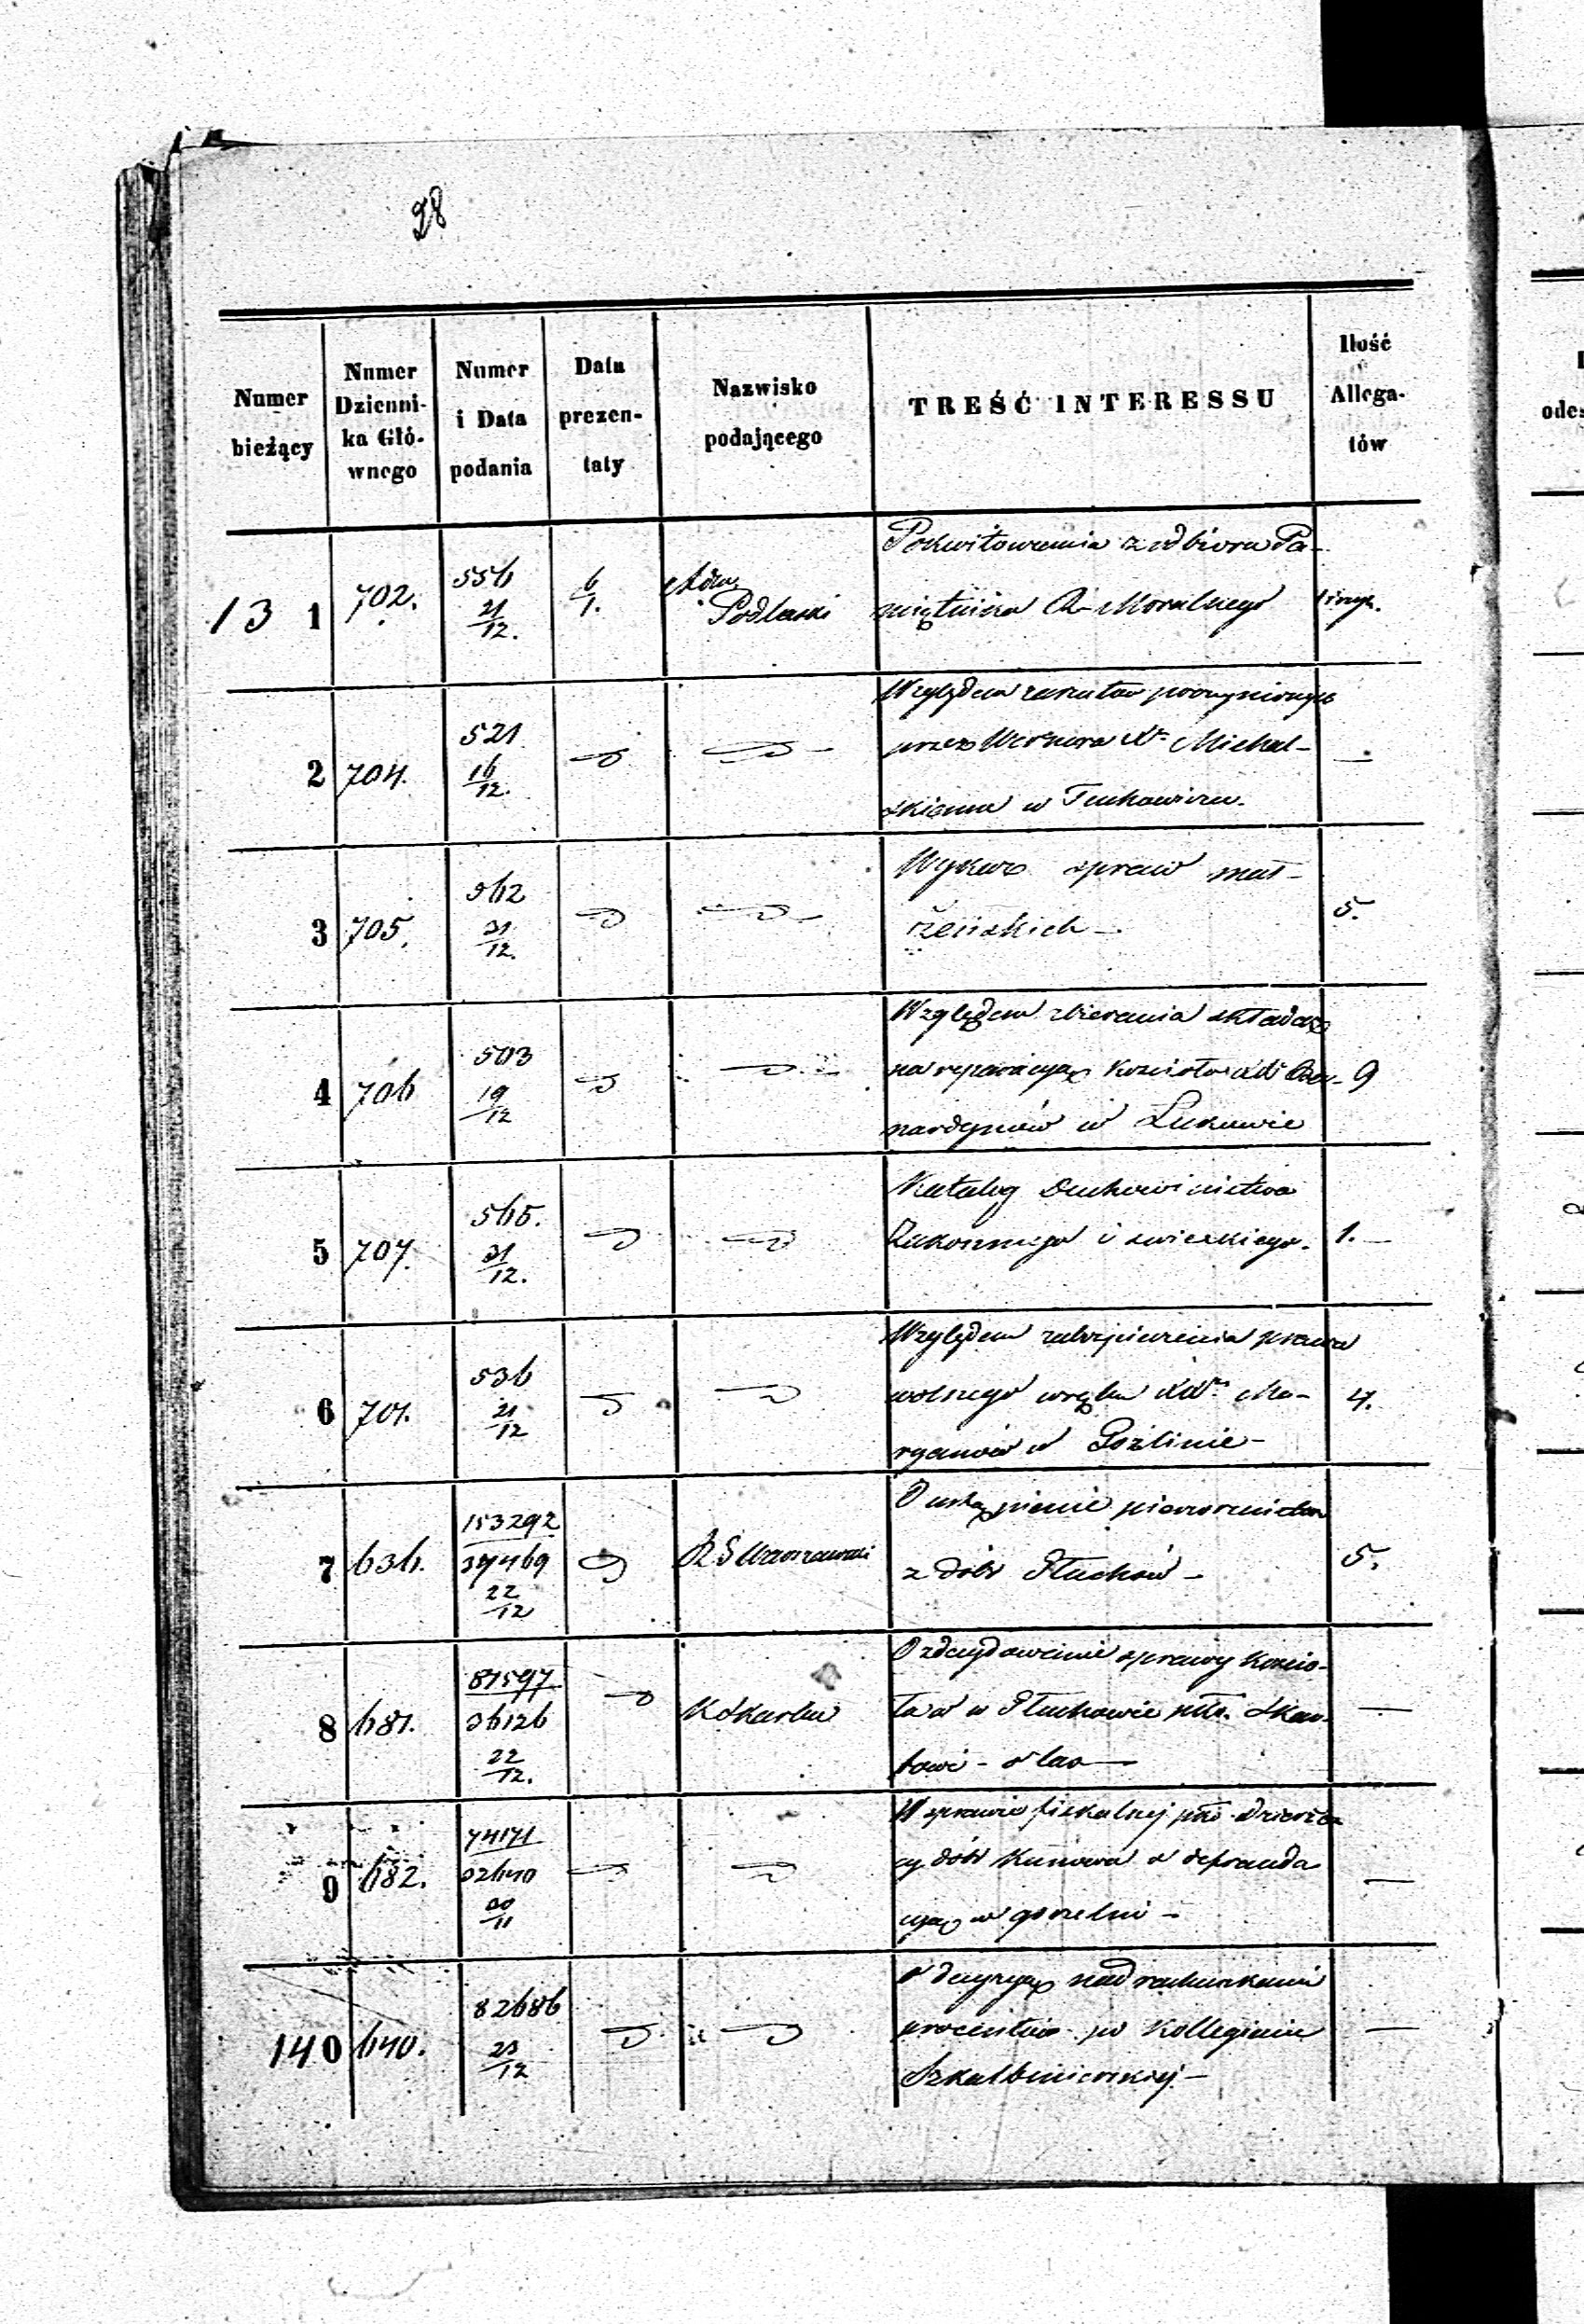 28
Numer bieżący
Numer Dzienni- ka Głó- wnego
Numer i Data podania
Data prezen- taty
Nazwisko podającego
TREŚĆ INTERESSU
Ilość Allega- tów
13 1 702. 556 21/12. 6/1. Podlaski
Pokwitowania z odbioru Pa-
miętnika R. Moralnego
2 704. 521 16/12.
Względem zarzutów poczynionych
przez Wernera Xa Michal-
skiemu w Tuchowiczu.
3 705. 562 31/12. 5.
Wykaz spraw mał-
żeńskich
4 706 503 19/12 9
Względem zbierania składek
na reparacyę kościoła XX Ber-
nardynów w Łukowie
5 707. 565. 31/12. 1.
Katalog Duchowieństwa
Zakonnego i świeckiego.
6 701. 536 21/12 4.
Względem zabezpieczenia prawa
wolnego wrębu XX Ma-
ryanów w Goźlinie
7 636. 153292 37469 22/12 RG Warszawski 5.
O ustąpienie pierwszeństwa
z dóbr Stuchów
8 681. 87597 36126 22/12. K Skarbu
O zdecydowanie sprawy kościo-
ła w Stuchowie płko. Skar-
bowi o las
9 682. 74171 32640 30/11
W sprawie fiskalnej płko dzierżaw
cy dóbr Kunowa o defrauda
cyę w gorzelni
140 640. 82686 23/12
o decyzyę nad rachunkami
procentów po Kollegiacie
Szkalbmierskiej